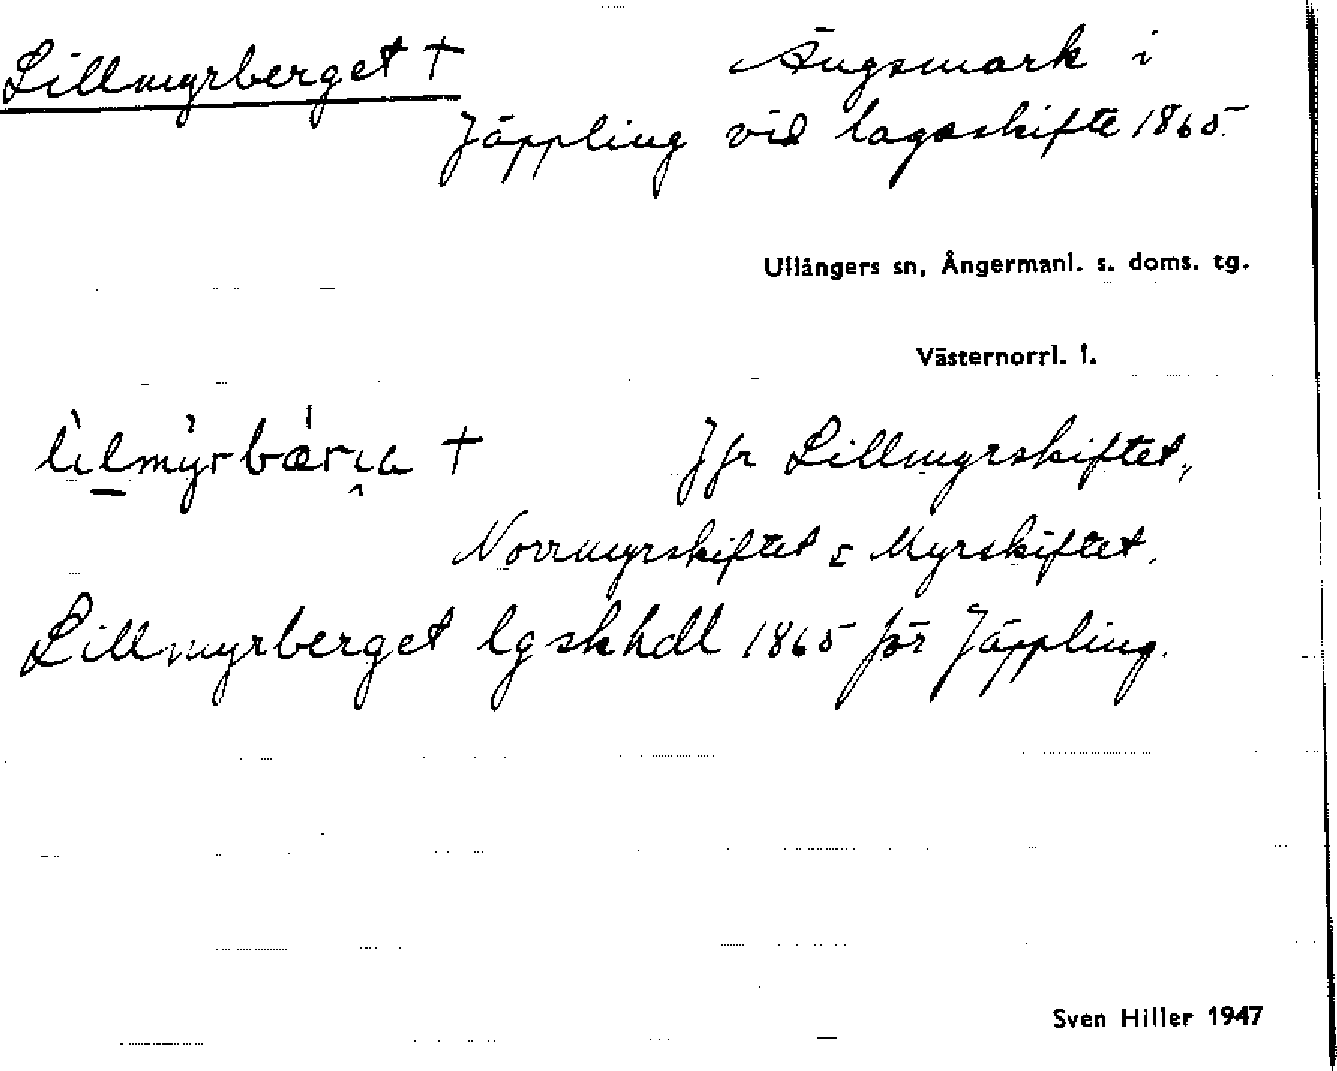 Lillmyrberget † Ängsmark i
Jäppling vid lagaskifte 1865
Ullångers sn, Ångermanl. s. doms. tg.
Västernorrl. l.
† Jfr Lillmyrskiftet,
Norrmyrskiftet & Myrskiftet.
Lillmyrberget lgskhdl 1865 för Jäppling.
Sven Hiller 1947